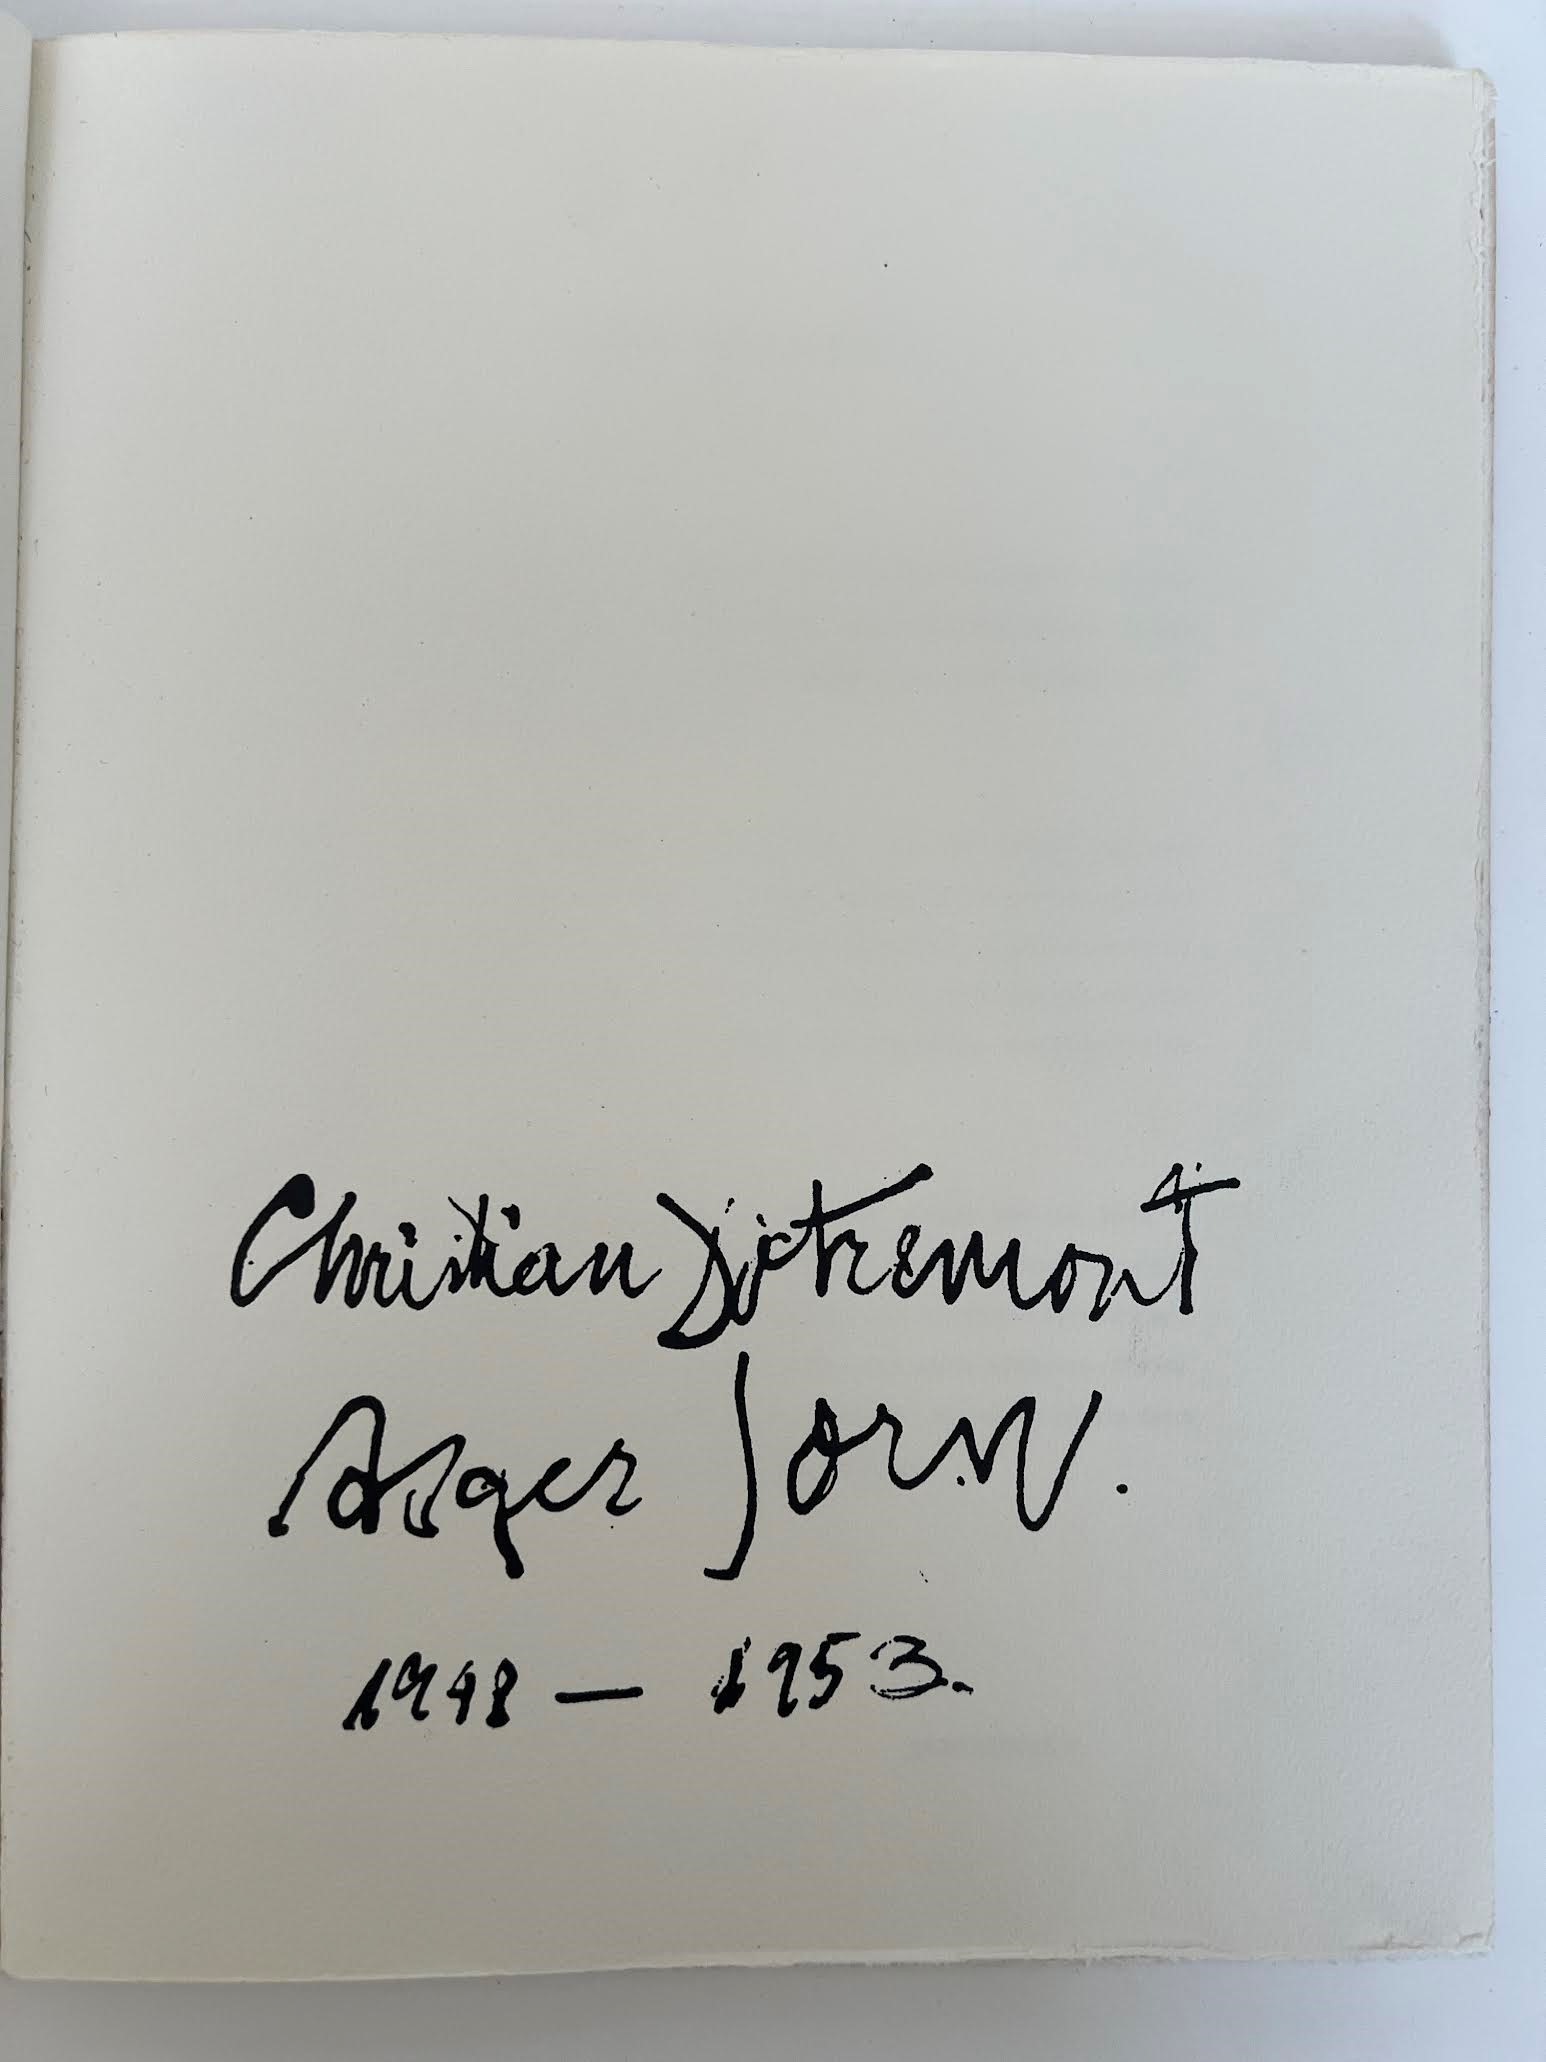 Christian Dotremont
Asger Jorn.
1948 — 1953.